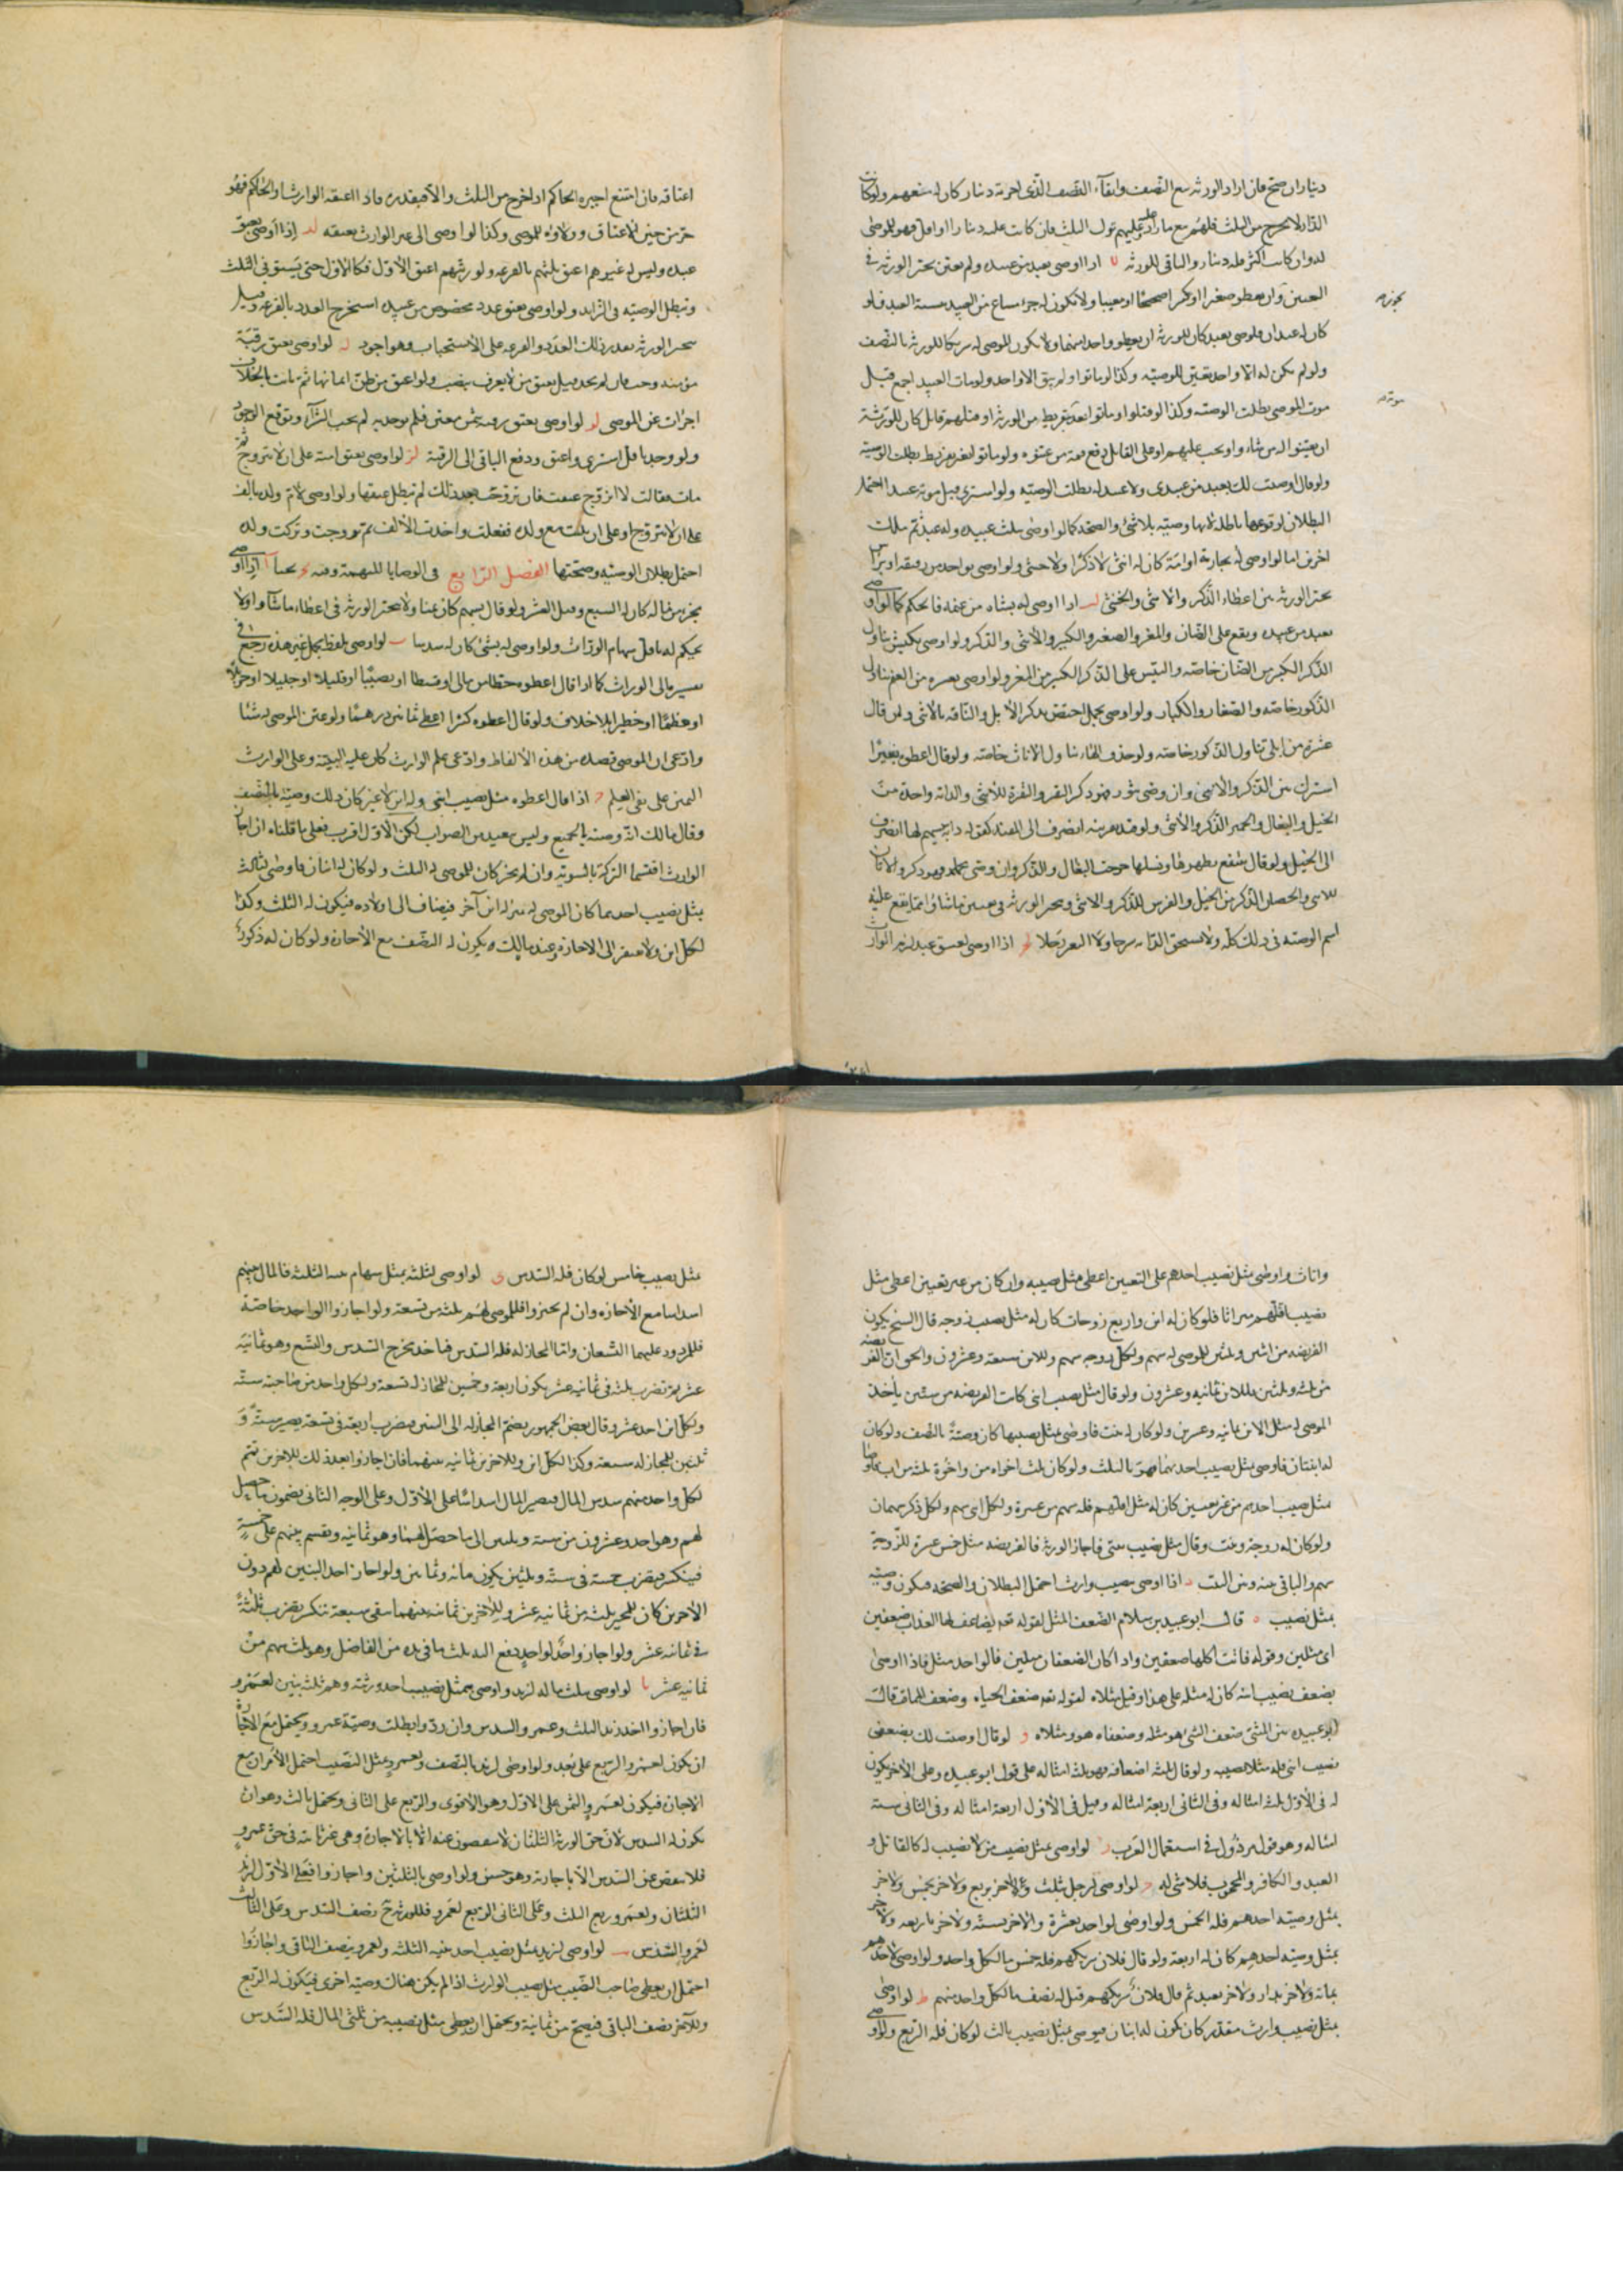 ديناران صح فان اراد الورثه بيع النصف وابقآء النصف الذى اجرته دينار كان له منعهم ولو كانت
الدار لا تخرج من الثلث فلهم بيع ما زاد عليهم على الثلث فان كانت غلته دينارا او اقل فهو للموصى
له وان كانت اكثر فله دينار والباقى للورثه لا اذا اوصى بعبد من عبيده ولم يعين تخير الورثه فى
التعيين وان يعطوه صغيرا او كبيرا صحيحا او معيبا ولا يكون له جزء مشاع من العبيد بنسبة العبد فلو
كان له عبدان فاوصى بعبد كان للورثه ان يعطوه واحدا منهما ولا يكون الموصى له شريكا للورثه بالنصف
ولو لم يكن له الا واحد تعين للوصيه وكذا لو ماتوا ولم يبق الا واحد ولو مات العبيد اجمع قبل
موت الموصى بطلت الوصيه وكذا لو قتلوا او ماتوا بعده بتفريط من الورثه او قتلهم قاتل كان للورثة
ان يعينوا له من شاء واو يجب عليهم او على القاتل دفع قيمة من عينوه ولو ماتوا بغير تفريط بطلت الوصيه
ولو قال اوصيت لك بعبد من عبيدى ولا عبد له بطلت الوصيه ولو اشترى قبل موته عبدا احتمل
البطلان لوقوعها باطله لانها وصيه بلا شئ والصحه كما لو اوصى بثلث عبيده وله عبد ثم ملك
اخرين اما لو اوصى له بجارية او امة كان له انثى لا ذكرا ولا خنثى ولو اوصى بواحد من رقيقه او براس
تخير الورثه بين اعطاء الذكر والانثى والخنثى لب اذا اوصى له بشاه من غنمه فالحكم كما لو اوصى
بعبد من عبيده ويقع على الضان والمعز والصغير والكبير والانثى والذكر ولو اوصى بكبش تناول
الذكر الكبير من الضان خاصه والتيس على الذكر الكبير من المعز ولو اوصى بعشره من الغنم تناول
الذكور خاصه والصغار والكبار ولو اوصى بجمل اختص بذكر الابل والناقه بالانثى ولو قال
عشرة من ابلى تناول الذكور خاصه ولو حذف الهاء تناول الاناث خاصه ولو قال اعطوه بعيرا
اشترك بين الذكر والانثى وان وصى بثور فهو ذكر البقر والبقرة للانثى والدابه واحدة من
الخيل والبغال والحمير الذكر والانثى ولو قيد بقرينه انصرف الى المقيد كقوله دابه يسهم لها انصرف
الى الخيل ولو قال ينتفع بظهرها ونسلها خرجت البغال والذكر وان وصى بحمار فهو ذكر والاتان
للانثى والحصان الذكر من الخيل والفرس للذكر والانثى ويتخير الورثه فى تعيين ما شاؤا مما يقع عليه
اسم الوصيه فى ذلك كله ولا تستحق الدابه سرجا ولا البعير رحلا لج اذا اوصى بعتق عبد لزم الوارث
يجزيه
موته
اعتاقه فان امتنع اجبره الحاكم ان خرج من الثلث والا فبقدره فاذا اعتقه الوارث او الحاكم فهو
حر من حين الاعتاق وولاؤه للموصى وكذا لو اوصى الى غير الوارث بعتقه لد اذا اوصى بعتق
عبده وليس له غيره اعتق ثلثهم بالقرعه ولو رتبهم اعتق الاول فالاول حتى يستوفى الثلث
وتبطل الوصيه فى الزايد ولو اوصى بعتق عدد مخصوص من عبيده استخرج العدد بالقرعه وقيل
يتخير الورثه بقدر ذلك العدد والقرعه على الاستحباب وهو اجود له لو اوصى بعتق رقبة
مؤمنه وجب فان لم يجد قيل يعتق من لا يعرف بنصب ولو اعتق من ظن ايمانها ثم بانت بالخلاف
اجزات عن الموصى لو لو اوصى بعتق رقبه بثمن معين فلم يوجد به لم يجب الشرآء وتوقع الوجود
ولو وجد باقل اشترى واعتق ودفع الباقى الى الرقبة لز لو اوصى بعتق امته على ان لا تتزوج ثم
مات فقالت لا اتزوج عتقت فان تزوجت بعد ذلك لم تبطل عتقها ولو اوصى لام ولده بالف
على ان لا تتزوج او على ان تثبت مع ولده ففعلت واخذت الالف ثم تزوجت وتركت ولده
احتمل بطلان الوصيه وصحتها الفصل الرابع فى الوصايا المبهمة وفيه يح بحثا ا اذا اوصى
بجزء من ماله كان له السبع وقيل العشر ولو قال بسهم كان ثمنا ولا يتخير الورثه فى اعطاء ما شاؤا ولا
يحكم له باقل سهام الوراث ولو اوصى له بشئ كان له سدسا ب لو اوصى بلفظ مجمل غير هذه رجع فى
تفسيره الى الوراث كما اذا قال اعطوه حظا من مالى او قسطا او نصيبا او قليلا او جليلا او جزيلا
او عظيما او خطيرا بلا خلاف ولو قال اعطوه كثيرا اعطى ثمانين درهما ولو عين الموصى له شئا
وادعى ان الموصى قصده من هذه الالفاظ وادعى علم الوارث كان عليه البينة وعلى الوارث
اليمين على نفى العلم ج اذا قال اعطوه مثل نصيب ابنى وله ابن لا غير كان ذلك وصية بالنصف
وقال مالك انه وصيه بالجميع وليس ببعيد من الصواب لكن الاول اقرب فعلى ما قلناه ان اجاز
الوارث اقتسما التركة بالسويه وان لم يجز كان للموصى له الثلث ولو كان له ابنان فاوصى لثالث
بمثل نصيب احدهما كان الموصى له بمنزله ابن آخر فيضاف الى اولاده فيكون له الثلث وكذا
لكل ابن ولا يفتقر الى الاجازه وعند مالك ويكون له النصف مع الاجازه ولو كان له ذكور
واناث فاوصى بمثل نصيب احدهم على التعيين اعطى مثل نصيبه وان كان من غير تعيين اعطى مثل
نصيب اقلهم ميراثا فلو كان له ابن واربع زوجات كان له مثل نصيب زوجه قال الشيخ يكون
الفريضه من اثنين وثلثين للموصى له سهم ولكل زوجه سهم وللابن سبعه وعشرون والحق ان الفريضه
من ثلثه وثلثين للابن ثمانيه وعشرون ولو قال مثل نصيب ابنى كانت الفريضه من ستين ياخذ
الموصى له مثل الابن ثمانيه وعشرين ولو كان له بنت فاوصى بمثل نصيبها كان وصية بالنصف ولو كان
له ابنتان فاوصى بمثل نصيب احدهما فهو بالثلث ولو كان ثلث اخواه من واخوة ثلثه من اب فاوصى
بمثل نصيب احدهم من غير تعيين كان له مثل اقلهم فله سهم من عشرة ولكل انثى سهم ولكل ذكر سهمان
ولو كان له زوجة وبنت وقال مثل نصيب بنتى فاجاز الورثه فالفريضه مثل خمس عشرة للزوجة
سهم والباقى بينه وبين البنت د اذا اوصى بنصيب وارث احتمل البطلان والصحه فيكون وصيه
بمثل نصيب ه قال ابو عبيد بن سلام الضعف المثل لقوله تعه يضاعف لها العذاب ضعفين
اى مثلين وقوله فاتت اكلها ضعفين واذا كان الضعفان مثلين فالواحد مثل فاذا اوصى
بضعف نصيب ابنه كان له مثله على هذا وقيل مثلاه لقوله تعه ضعف الحياه وضعف الممات قال
ابو عبيده بن المثنى ضعف الشئ هو مثله وضعفاه هو ومثلاه و لو قال اوصيت لك بضعفى
نصيب ابنى فله مثلا نصيبه ولو قال ثلثه اضعافه فهو ثلثه امثاله على قول ابو عبيده وعلى الاخر يكون
له فى الاول ثلثه امثاله وفى الثانى اربعة امثاله وقيل فى الاول اربعة امثاله وفى الثانى سته
امثاله وهو قول مرذول فى استعمال العرب ز لو اوصى بمثل نصيب من لا نصيب له كالقاتل و
العبد والكافر والمحجوب فلا شئ له ح لو اوصى لرجل بثلث ولاخر بربع ولاخر بخمس ولاخر
بمثل وصيه احدهم فله الخمس ولو اوصى لواحد بعشرة والاخر بسته ولاخر باربعه ولاخر
بمثل وصيه احدهم كان له اربعة ولو قال فلان شريكهم فله خمس مال كل واحد ولو اوصى لاحدهم
بماته ولاخر بدار ولاخر بعبد ثم قال فلان شريكهم قبل له نصف مال كل واحد منهم ط لو اوصى
بمثل نصيب وارث مقدر كان يكون له ابنان فيوصى بمثل نصيب ثالث لو كان فله الربع ولو اوصى
مثل نصيب خامس لو كان فله السدس ى لو اوصى لثلثه بمثل سهام بنيه الثلثه فالمال بينهم
اسداسا مع الاجازه وان لم يجيزوا فللموصى لهم ثلثه من تسعة ولو اجازوا الواحد خاصة
فللمردود عليهما التسعان واما المجاز له فله السدس فياخذ مخرج السدس والتسع وهو ثمانيه
عشر ثم تضرب ثلثه فى ثمانيه عشر يكون اربعة وخمسين للمجاز له تسعة ولكل واحد من صاحبيه ستة
ولكل ابن احد عشر وقال بعض الجمهور يضم المجاز له الى البنين فيضرب اربعة فى تسعة يصير ستة و
ثلثين للمجاز له سبعة وكذا لكل ابن وللاخرين ثمانيه بينهما فان اجازوا بعد ذلك للاخرين تتم
لكل واحد منهم سدس المال فيصير المال اسداسا على الاول وعلى الوجه الثانى يضمون ما حصل
لهم وهو احد وعشرون من سته وثلثين الى ما حصل لهما وهو ثمانيه ويقسم بينهم على خمسة
فينكسر فيضرب خمسة فى ستة وثلثين يكون مائه وثمانين ولو اجاز احد البنين لهم دون
الاخرين كان للمجيز ثلثه من ثمانيه عشر وللاخرين ثمانيه بينهما يبقى سبعة تنكسر فيضرب ثلثة
فى ثمانيه عشر ولو اجاز واحد لواحد دفع اليه ثلث ما فى يده من الفاضل وهو ثلث سهم من
ثمانيه عشر يا لو اوصى بثلث ماله لزيد واوصى بمثل نصيب احد ورثته وهم ثلث بنين لعمرو
فان اجازوا اخذ زيد الثلث وعمرو السدس وان ردوا بطلت وصية عمرو ويحتمل مع الاجازة
ان يكون لعمرو الربع على بعد ولو اوصى لزيد بالنصف ولعمرو بمثل النصيب احتمل الامران مع
الاجازة فيكون لعمرو الثمن على الاول وهو الاقوى والربع على الثانى ويحتمل ثالث وهو ان
يكون له السدس لان حق الورثه الثلثان لا ينقصون عنه الا بالاجازة وهى غير ثابته فى حق عمرو
فلا ينقص عن السدس الا باجازته وهو حسن ولو اوصى بالثلثين واجازوا فعلى الاول لزيد
الثلثان ولعمرو ربع الثلث وعلى الثانى الربع لعمرو فللورثه ح نصف السدس وعلى الثالث
لعمرو السدس يب لو اوصى لزيد بمثل نصيب احد بنيه الثلثه ولعمرو بنصف الباقى واجازوا
احتمل ان يعطى صاحب النصيب مثل نصيب الوارث اذا لم يكن هناك وصيه اخرى فيكون له الربع
وللاخر نصف الباقى فيصح من ثمانية ويحتمل ان يعطى مثل نصيبه من ثلثى المال فله السدس